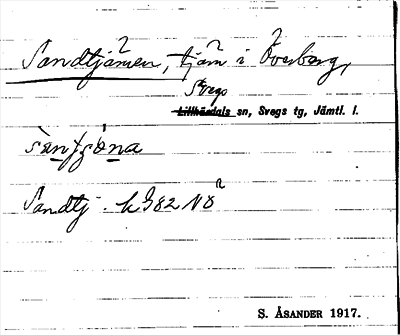 Sandtjärnen, tjärn i Överberg,
Svegs
Lillhärdals sn, Svegs tg, Jämtl. l.
Sandtj. k 982 NÖ
S. ÅSANDER 1917.